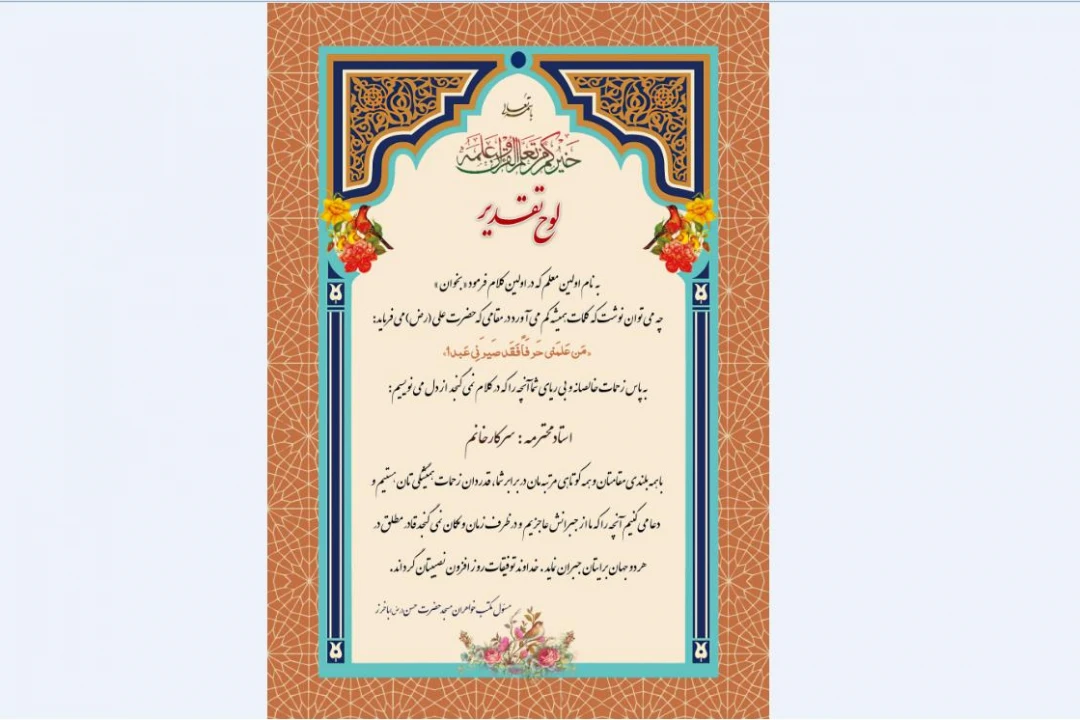 باسمه تعالی
خیرکم من تعلم القرآن و علمه
لوح تقدیر
به نام اولین معلم که در اولین کلام فرمود «بخوان»
چه می توان نوشت که کلمات همیشه کم می آورد در مقامی که حضرت علی (رض) می فرماید:
«مَن عَلَمَنی حَرفاً فَقَد صَیرَنی عَبدا»
به پاس زحمات خالصانه و بی ریای شما آنچه را که در کلام نمی گنجد از دل می نویسیم:
استاد محترمه: سرکار خانم
با همه بلندی مقامتان و همه کوتاهی مرتبه مان در برابر شما، قدردان زحمات همیشگی تان هستیم و
دعا می کنیم آنچه را که ما از جبرانش عاجزیم و در ظرف زمان و مکان نمی گنجد قادر مطلق در
هر دو جهان برایتان جبران نماید. خداوند توفیقات روز افزون نصیبتان گرداند.
مسئول مکتب خواهران مسجد حضرت حسن (رض) باخرز